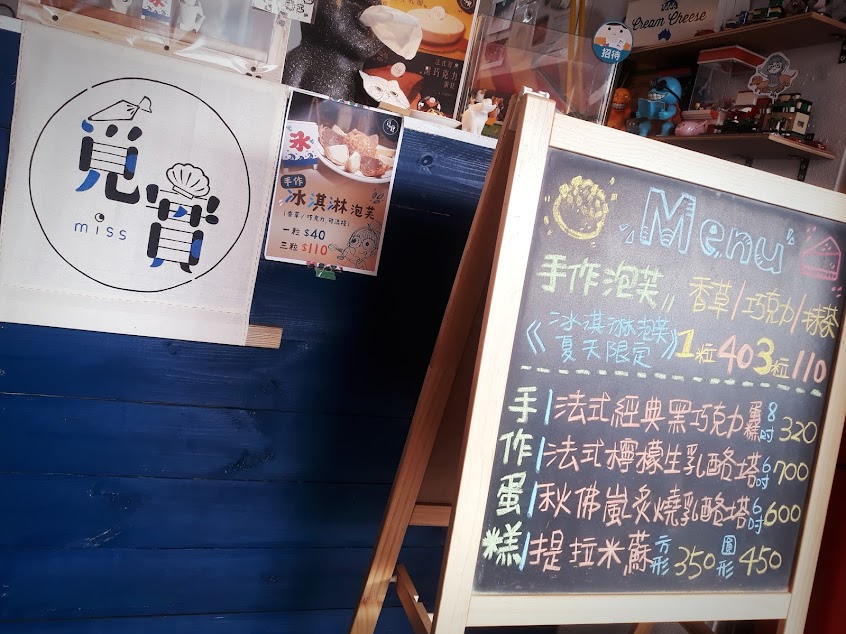 覓
miss
實
氷
手作
冰淇淋泡芙
(香草/巧克力 可混搭)
一粒 $40
三粒 $110
黑巧克力
Cream Cheese
招待
Menu
手作泡芙 香草/巧克力/抹茶
《冰淇淋泡芙
夏天限定》
1粒40 3粒110
手作蛋糕
法式經典黑巧克力蛋糕8吋320
法式檸檬生乳酪塔6吋700
秋佛嵐炙燒乳酪塔6吋600
提拉米蘇方形350圓形450